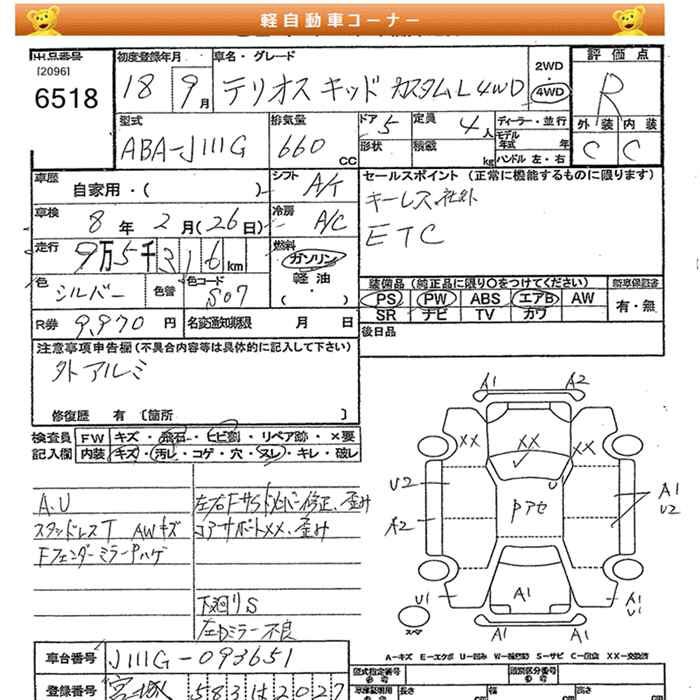 軽自動車コーナー
出品番号 [2096] 6518
初度登録年月 18 9月
車名・グレード テリオスキッド カスタムL 4WD
2WD
4WD
評価点 R
外装 C 内装 C
型式 ABA-J111G
排気量 660 CC
ドア 5 定員 4人
形状 積載 kg
ディーラー・並行
モデル年式 年
ハンドル 左・右
車歴 自家用・( )
シフト A/T
車検 8年 2月(26日)
冷房 A/C
走行 9万5千316km
燃料 ガソリン 軽油 ( ・ )
色 シルバー 色替 色コード S07
R券 9,970円 名変通知期限 月 日
セールスポイント (正常に機能するものに限ります)
キーレス 社外
ETC
装備品 (純正品に限り〇をつけてください)
PS PW ABS エアB AW
SR ナビ TV カワ
新車保証書
有・無
後日品
注意事項申告欄 (不具合内容等は具体的に記入して下さい)
外アルミ
修復歴 有 〔箇所 〕
検査員記入欄
FW キズ・飛石・ヒビ割・リペア跡・×要
内装 キズ・汚レ・コゲ・穴・スレ・キレ・破レ
A.U
スタッドレスT AWキズ
Fフェンダーミラーハゲ
修正、歪み
コアサポートXX、歪み
下廻りS
左Dミラー不良
A1 A2
XX XX XX
U2 A2 U1
Pアセ
U
A1 U2
A1
A1 U1
A1 A1
スペア
A-キズ E-エクボ U-凹み S-サビ C-腐食 XX-交換済
車台番号 J111G-093651
登録番号 583 は 2027
型式指定番号 類別区分番号
長さ 幅 高さ